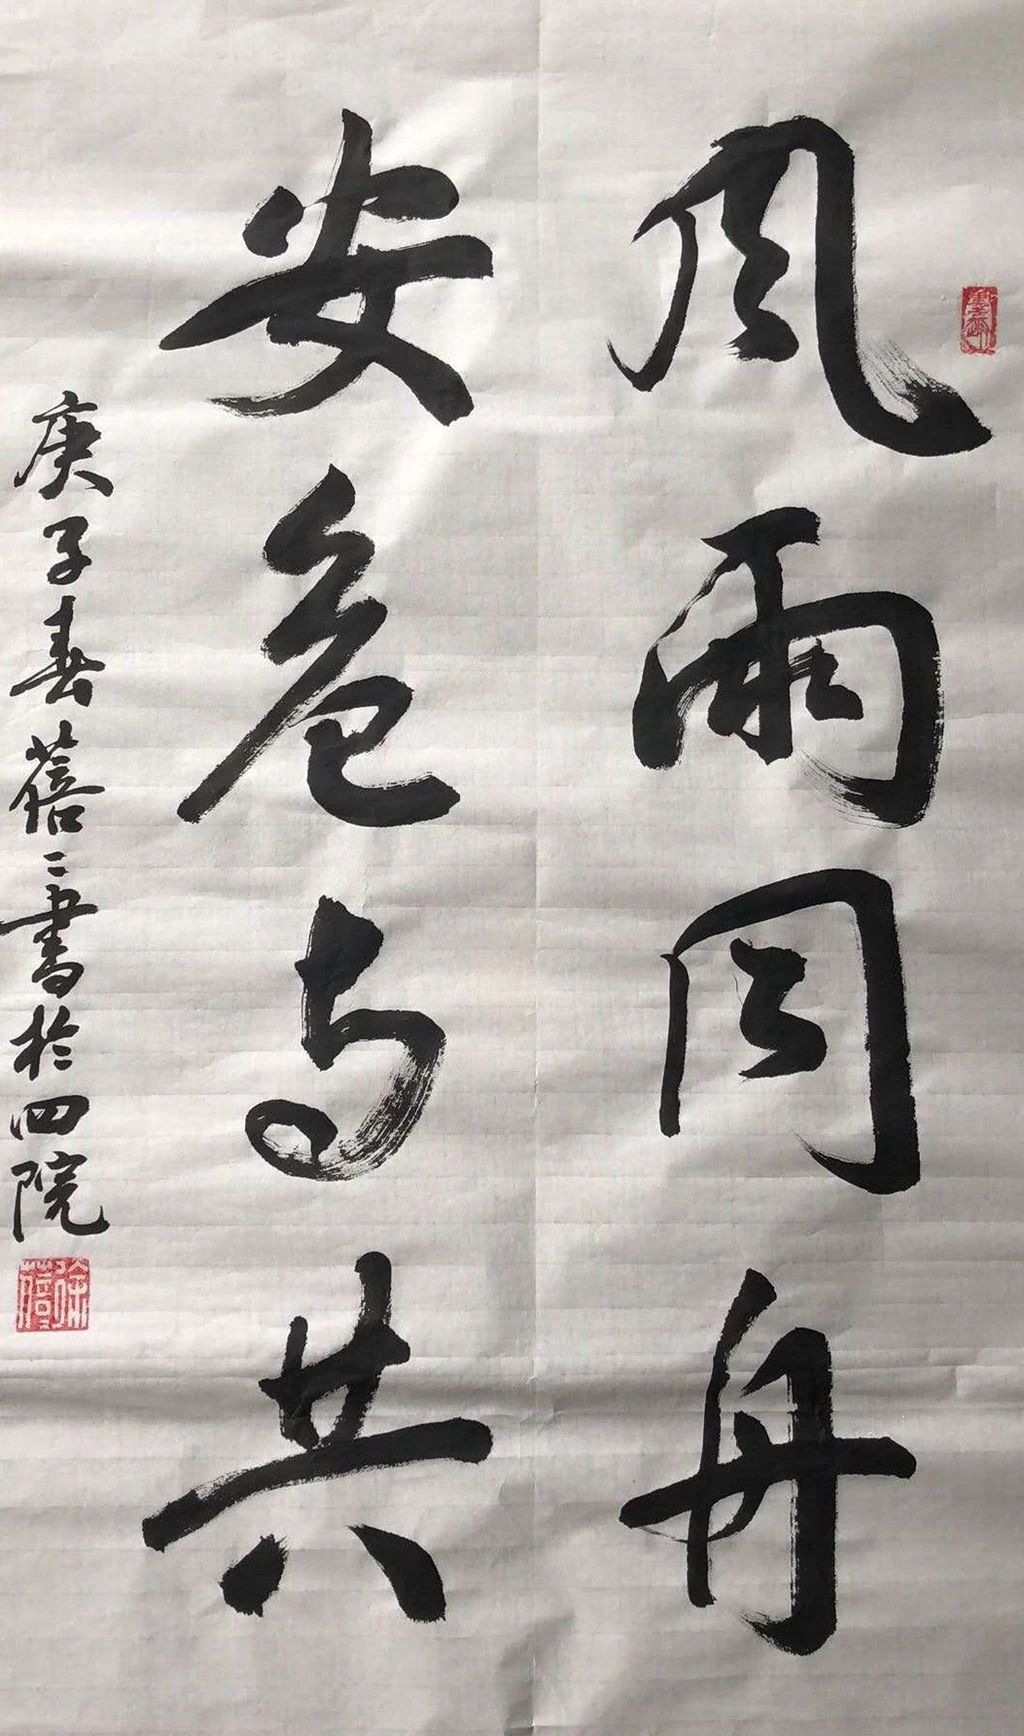 風雨同舟
安危与共
庚子春蓓蓓書於四院